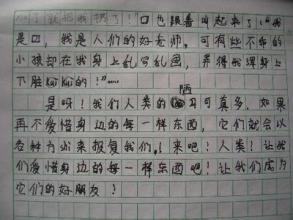 就把我撕了！口也跟着叫起来了："我
是口，我是人们的好老师，可有些不乖的
小孩却在我身上乱写乱画，弄得我浑身上
下脏kāi kāi的！"……
陋
是呀！我们人类的习可真多，如果
再不爱惜身边的每一样东西，它们就会以
各种方式来报复我们，来吧！人类！让我
们爱惜身边的每一样东西吧！让我们成为
它们的好朋友？